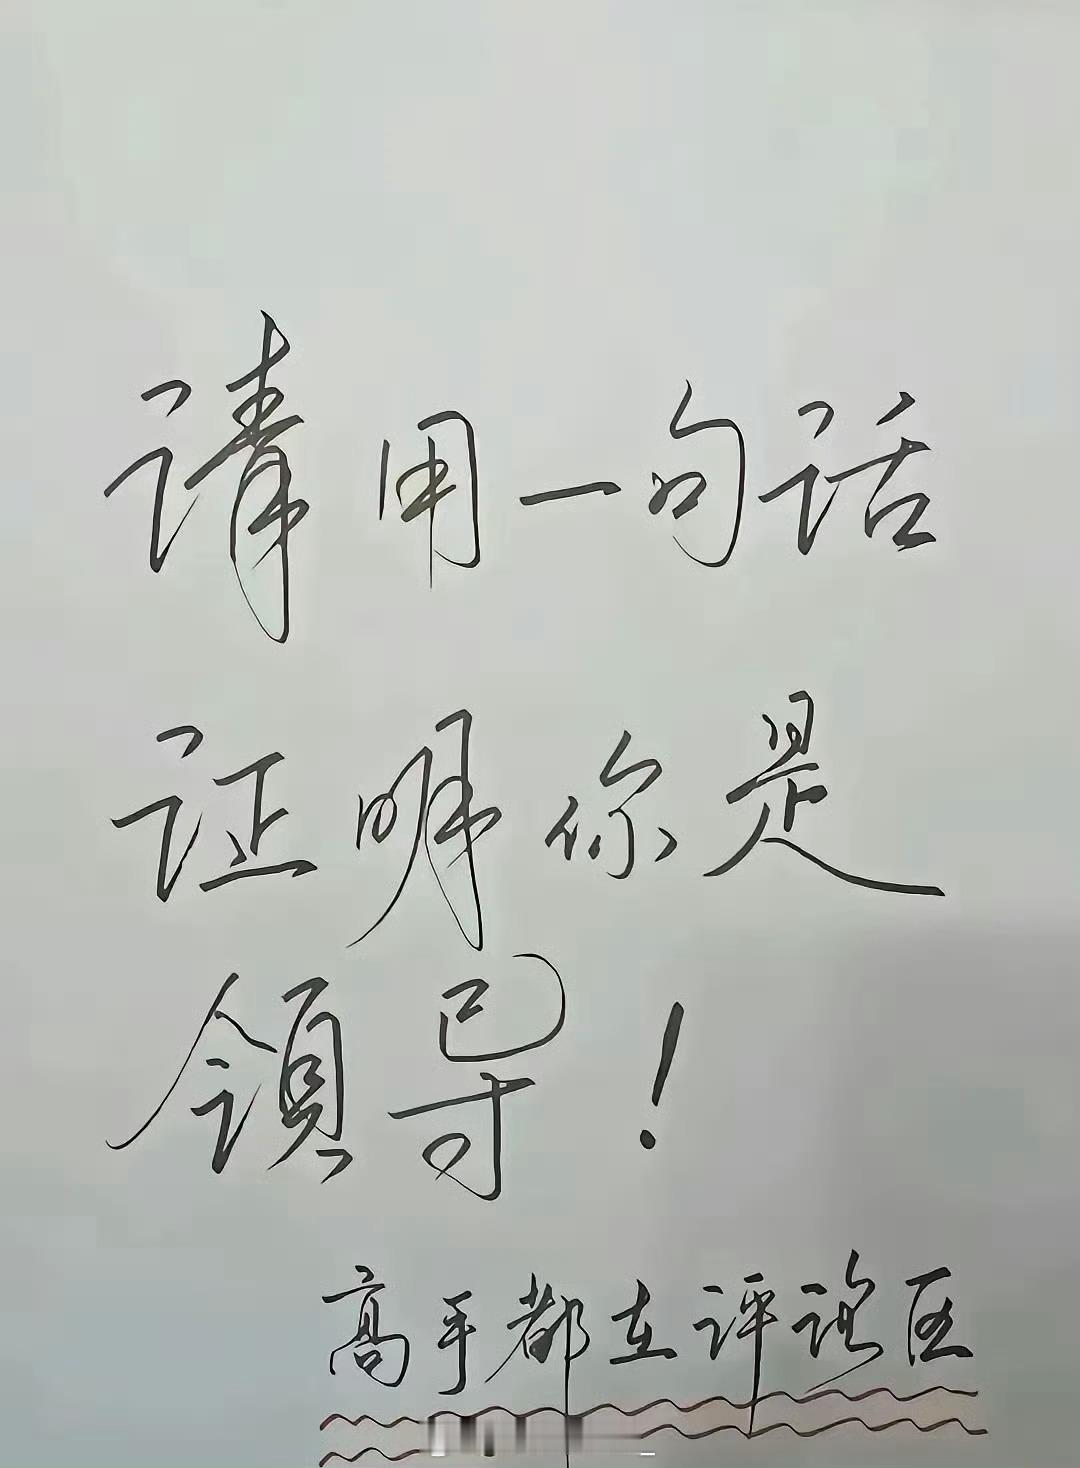 请用一句话
证明你是
领导！
高手都在评论区